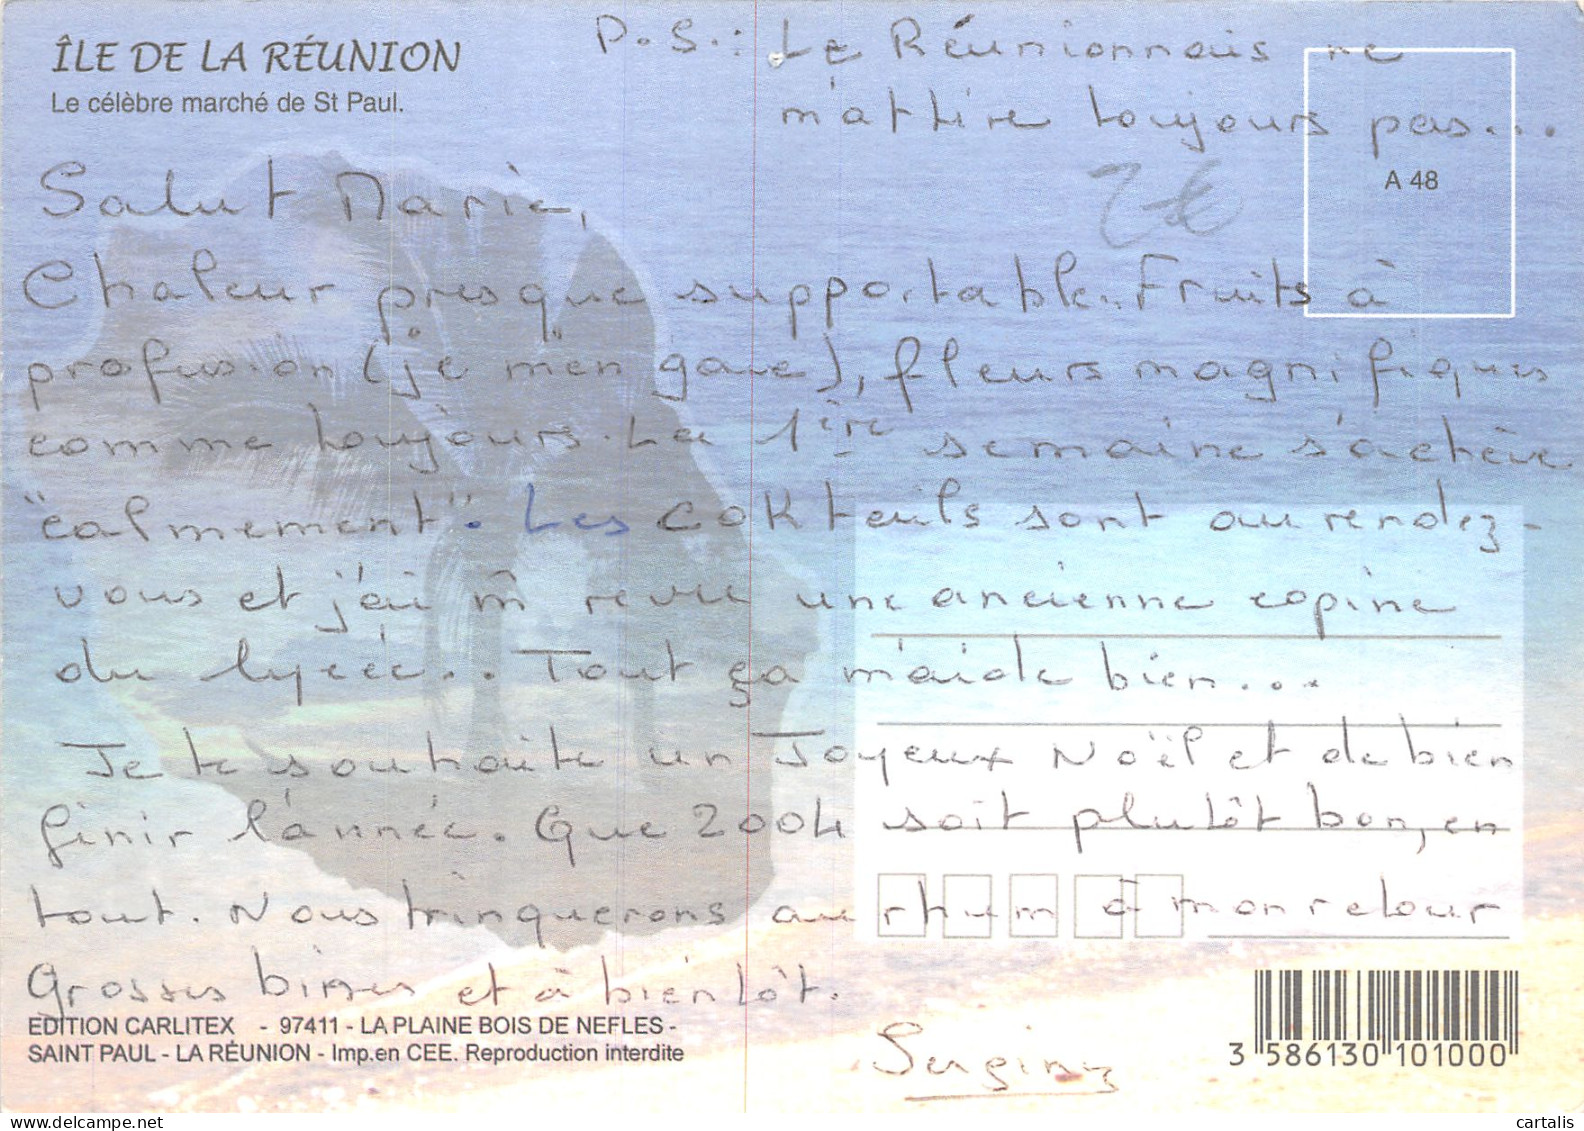 ÎLE DE LA RÉUNION
Le célèbre marché de St Paul.
P.S.: Le Réunionnais ne
m'attire toujours pas...
A 48
2€
Salut Marie,
Chaleur presque supportable.. Fruits à
profusion (je m'en gave), fleurs magnifiques
comme toujours. La 1ère semaine s'achève
"calmement". Les cokteils sont au rendez-
vous et j'ai m̂ revu une ancienne copine
du lycée... Tout ça m'aide bien...
Je te souhaite un Joyeux Noël et de bien
finir l'année. Que 2004 soit plutôt bon, en
tout. Nous trinquerons au rhum à mon retour
Grosses bises et à bientôt.
EDITION CARLITEX - 97411 - LA PLAINE BOIS DE NEFLES -
SAINT PAUL - LA RÉUNION - Imp.en CEE. Reproduction interdite
3 586130 101000
cartalis